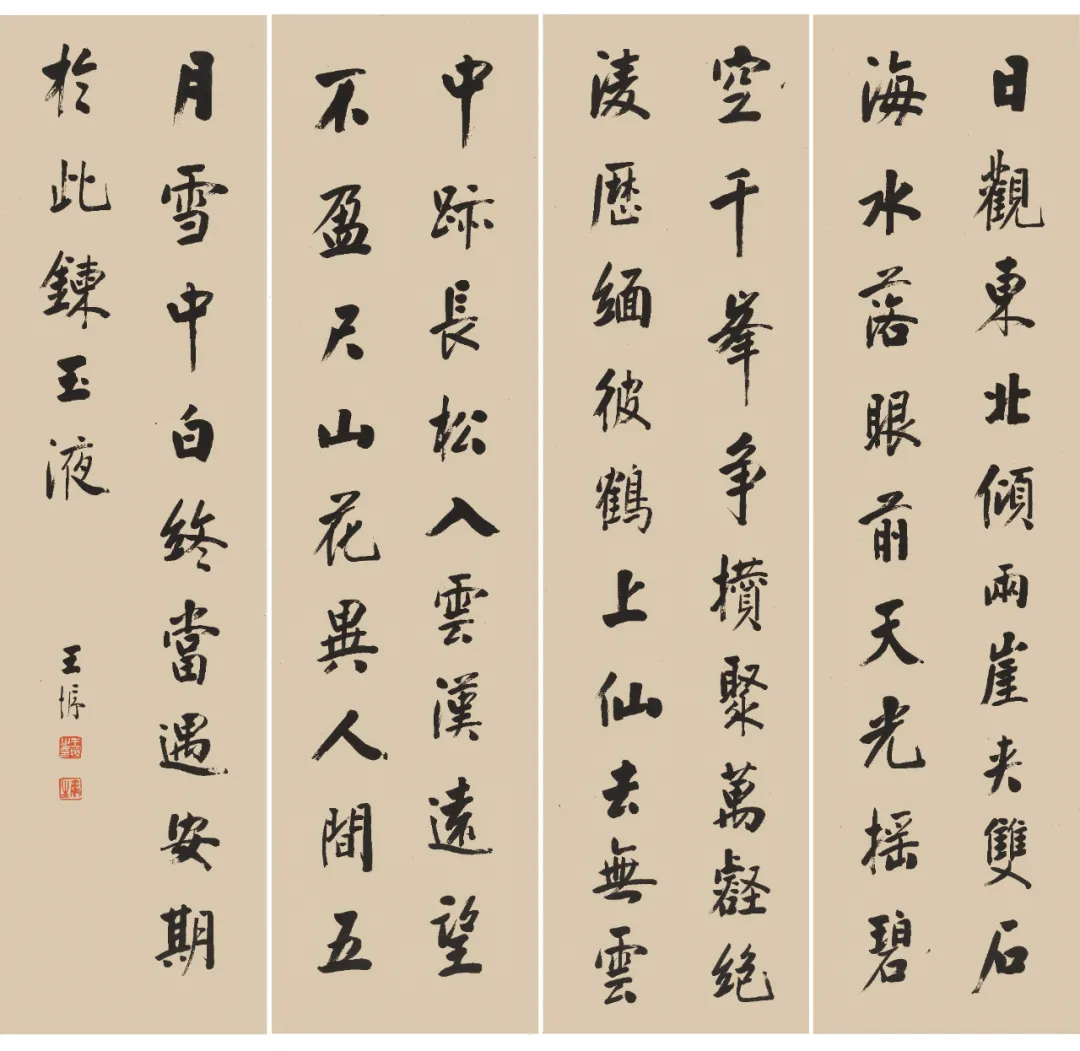 日觀東北傾兩崖夾雙石
海水落眼前天光摇碧
空千峯争攢聚萬壑絶
淩歷緬彼鶴上仙去無雲
中跡長松入雲漢遠望
不盈尺山花異人間五
月雪中白終當遇安期
於此鍊玉液
王